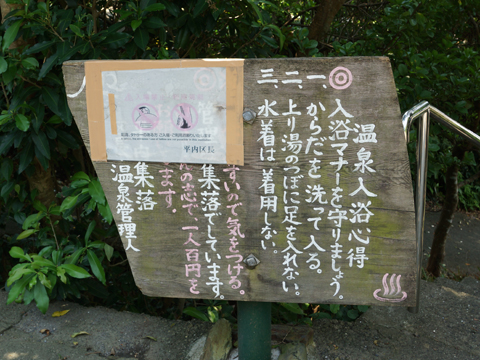 温泉入浴心得
◎入浴マナーを守りましょう。
一、からだを洗って入る。
二、上り湯のつぼに足を入れない。
三、水着は着用しない。
すいので気をつける。
集落でしています。
の志で、一人百円を
ます。
集落
温泉管理人
平内区長